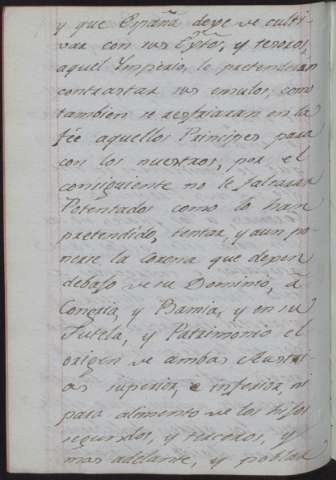 y que España dexe de culti
var con sus Exto.s, y tesoros
aquel Imperio, le pretendrian
contrastar sus emulos, como
tambien se resfriaran en la
fée aquellos Principes para
con los nuestros, por el
consiguiente no le faltaran
Potentados como lo han
pretendido, tentar, y aun po
nerse la Corona que dexen
debajo de su Dominio, á
Ungria, y y en su
Tutela, y Patrimonio el
origen de ambas Austri
as superior, e inferior, ni
para alimento de los hijos
segundos, y terceros, y
mas adelante, y